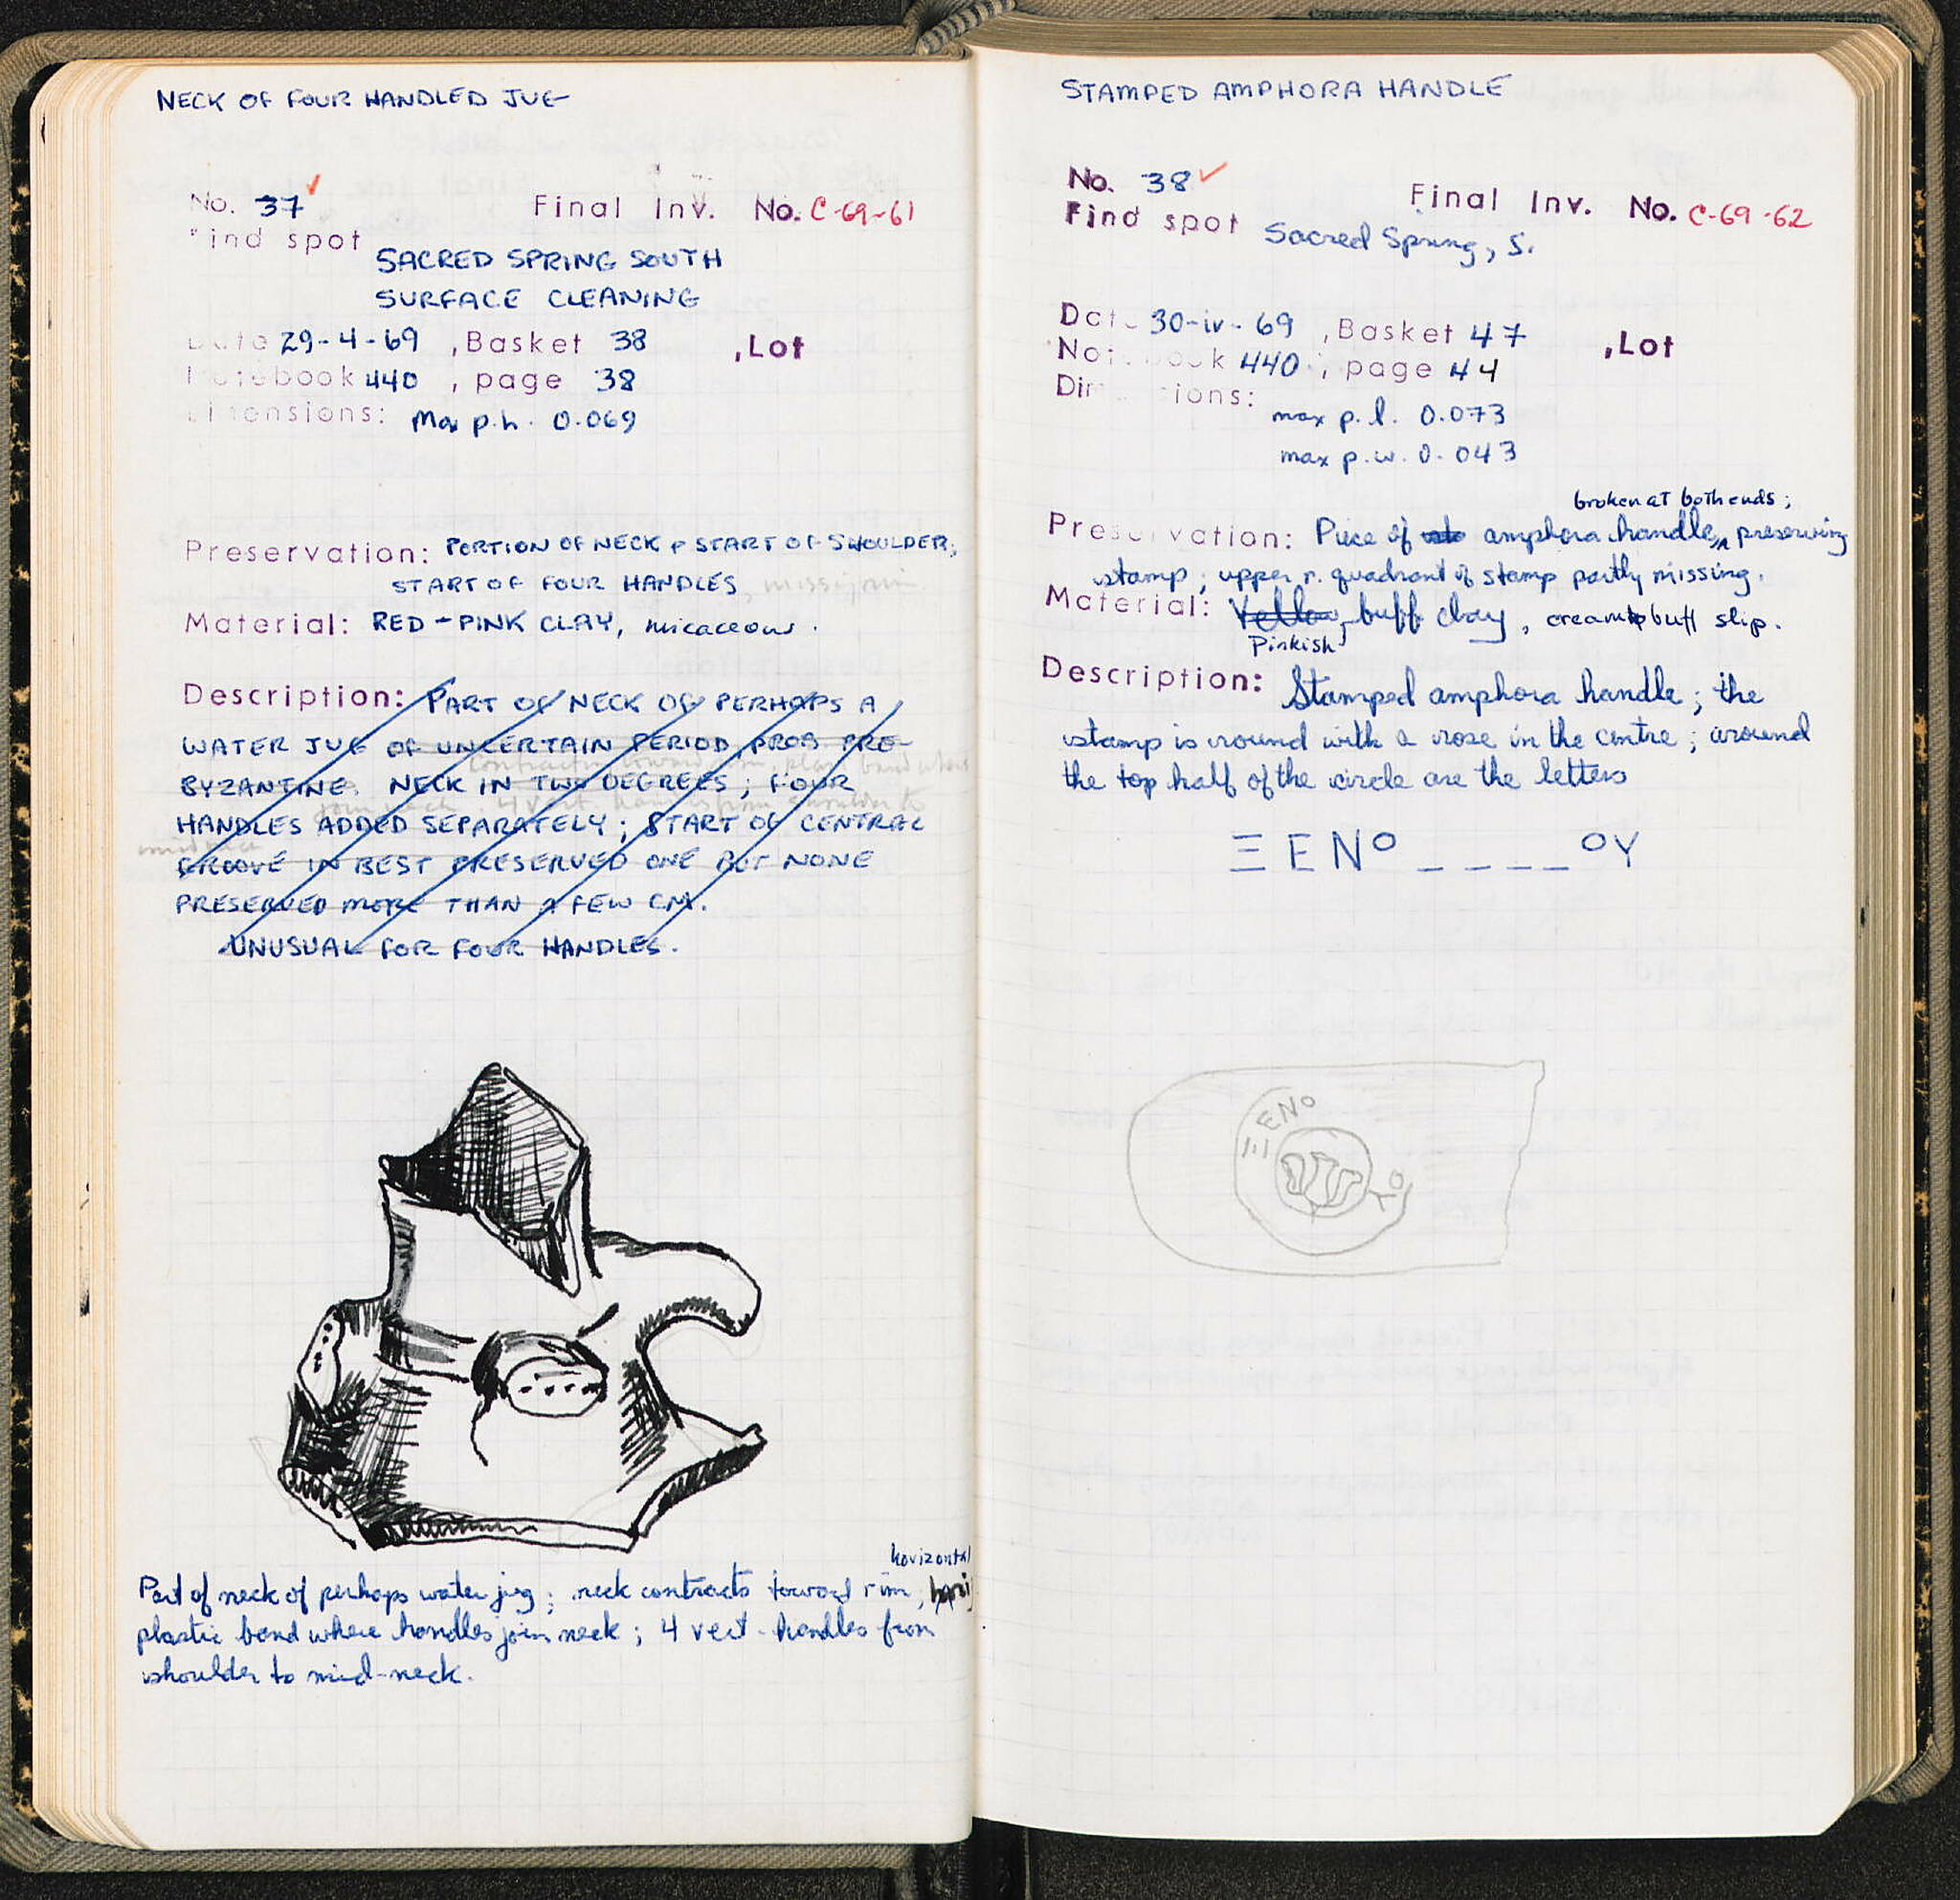 NECK OF FOUR HANDLED JUG
No. 37 ✓ Final Inv. No. C-69-61
Find spot
SACRED SPRING SOUTH
SURFACE CLEANING
Date 29-4-69 , Basket 38 , Lot
Notebook 440 , page 38
Dimensions: Max p.h. 0.069
Preservation: PORTION OF NECK & START OF SHOULDER;
START OF FOUR HANDLES, missing rim
Material: RED-PINK CLAY, micaceous.
Description: PART OF NECK OF PERHAPS A
WATER JUG OF UNCERTAIN PERIOD, PROB PRE-
BYZANTINE. NECK IN TWO DEGREES; FOUR
HANDLES ADDED SEPARATELY; START OF CENTRAL
GROOVE IN BEST PRESERVED ONE BUT NONE
PRESERVED MORE THAN A FEW CM.
UNUSUAL FOR FOUR HANDLES.
horizontal
Part of neck of perhaps water jug; neck contracts toward rim;
plastic band where handles join neck; 4 vert. handles from
shoulder to mid-neck.
STAMPED AMPHORA HANDLE
No. 38 ✓ Final Inv. No. C-69-62
Find spot Sacred Spring, S.
Date 30-iv-69 , Basket 47 , Lot
Notebook 440 , page 44
Dimensions:
max p.l. 0.073
max p.w. 0.043
broken at both ends;
Preservation: Piece of amphora handle, preserving
stamp; upper r. quadrant of stamp partly missing.
Material: Yellow buff clay, cream buff slip.
Pinkish
Description: Stamped amphora handle; the
stamp is round with a rose in the centre; around
the top half of the circle are the letters
ΞENO _ _ _ _ OY
ΞENO
OY